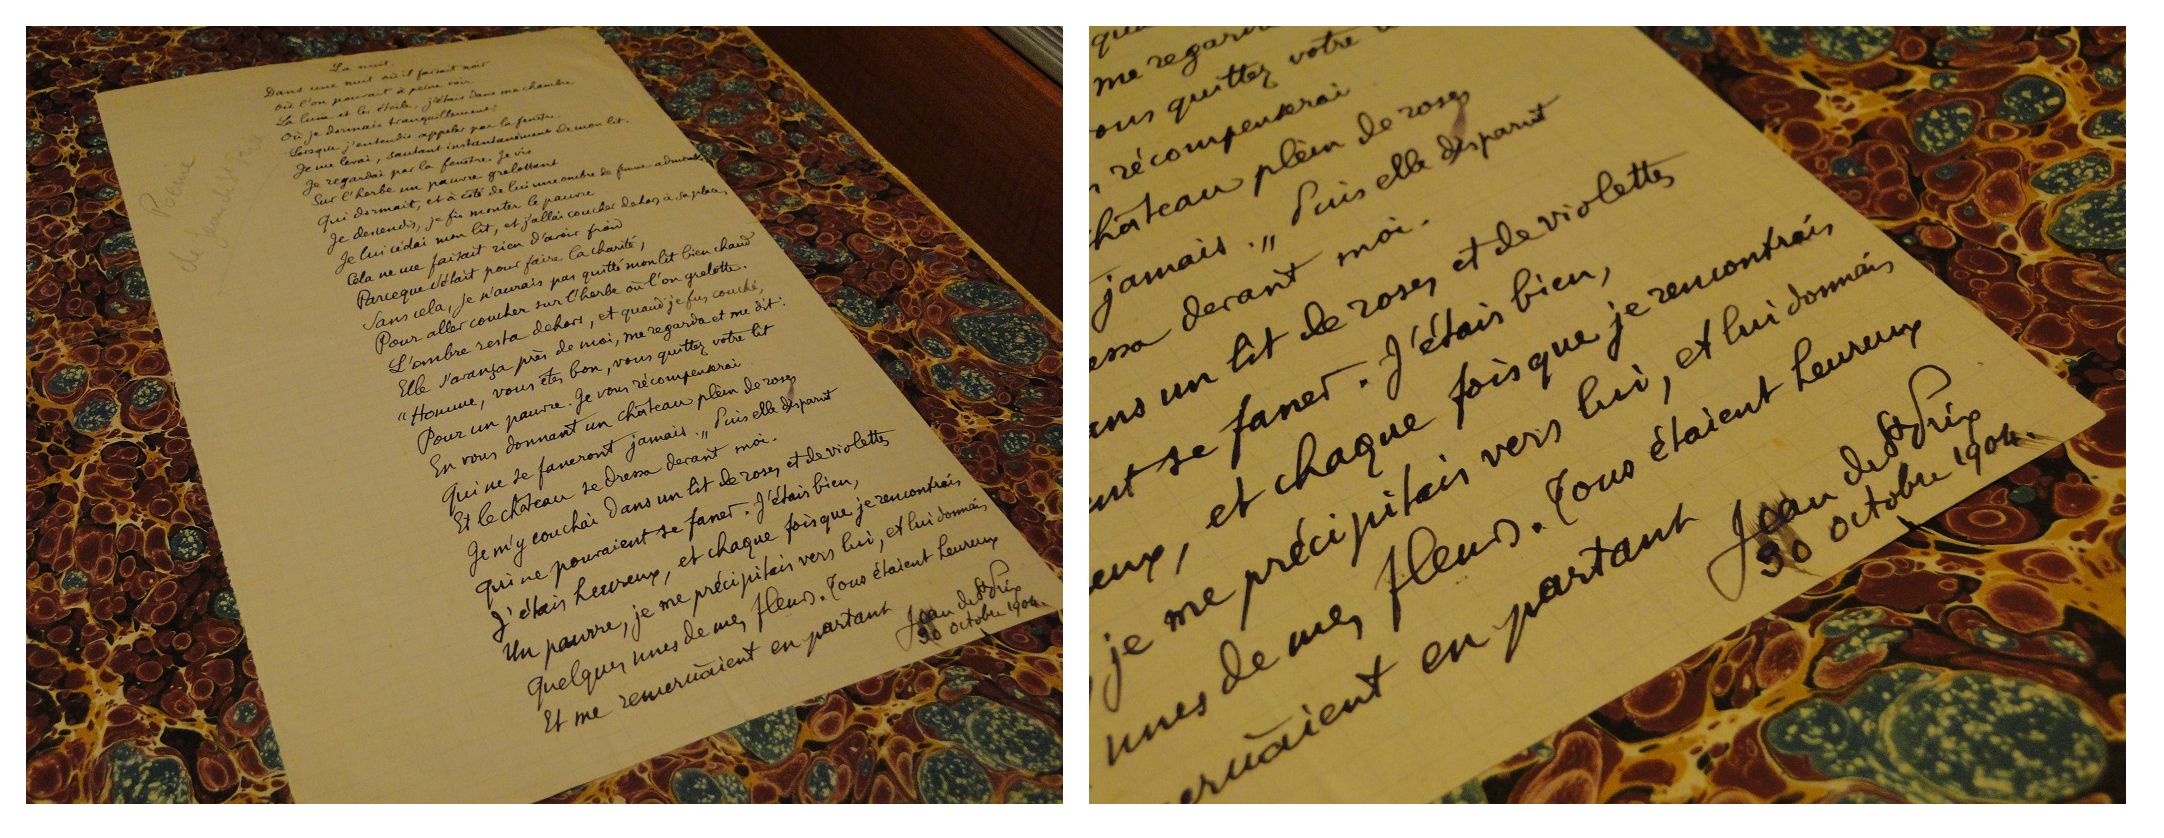 La nuit.
Dans une nuit où il faisait noir
Où l'on pouvait à peine voir
La lune et les étoile, j'étais dans ma chambre
Où je dormais tranquillement.
Lorsque j'entendis appeler par la fenêtre.
Je me levai, sautant instantanément de mon lit.
Je regardai par la fenêtre. Je vis
Sur l'herbe un pauvre grelottant
Qui dormait, et à côté de lui une ombre de femme admirable
Je descendis, je fis monter le pauvre
Je lui cédai mon lit, et j'allai coucher dehors à sa place,
Cela ne me faisait rien d'avoir froid
Parceque c'était pour faire la charité,
Sans cela, je n'aurais pas quitté mon lit bien chaud
Pour aller coucher sur l'herbe où l'on grelotte.
L'ombre resta dehors, et quand je fus couché,
Elle s'avança près de moi, me regarda et me dit:
"Homme, vous êtes bon, vous quittez votre lit
Pour un pauvre. Je vous récompenserai
En vous donnant un château plein de roses
Qui ne se faneront jamais." Puis elle disparut
Et le château se dressa devant moi.
Je m'y couchai dans un lit de roses et de violettes
Qui ne pouvaient se faner. J'étais bien,
J'étais heureux, et chaque foisque je rencontrais
Un pauvre, je me précipitais vers lui, et lui donnais
Quelques unes de mes fleurs. Tous étaient heureux
Et me remerciaient en partant
Jean de St Prix
30 octobre 1904.
Poème
de Jean de St Prix
me regard
ous quittez votre
récompenserai
château plein de roses
jamais." Puis elle disparut
essa devant moi.
ans un lit de roses et de violettes
ent se faner. J'étais bien,
eux, et chaque foisque je rencontrais
je me précipitais vers lui, et lui donnais
unes de mes fleurs. Tous étaient heureux
erciaient en partant
Jean de St Prix
30 octobre 1904.